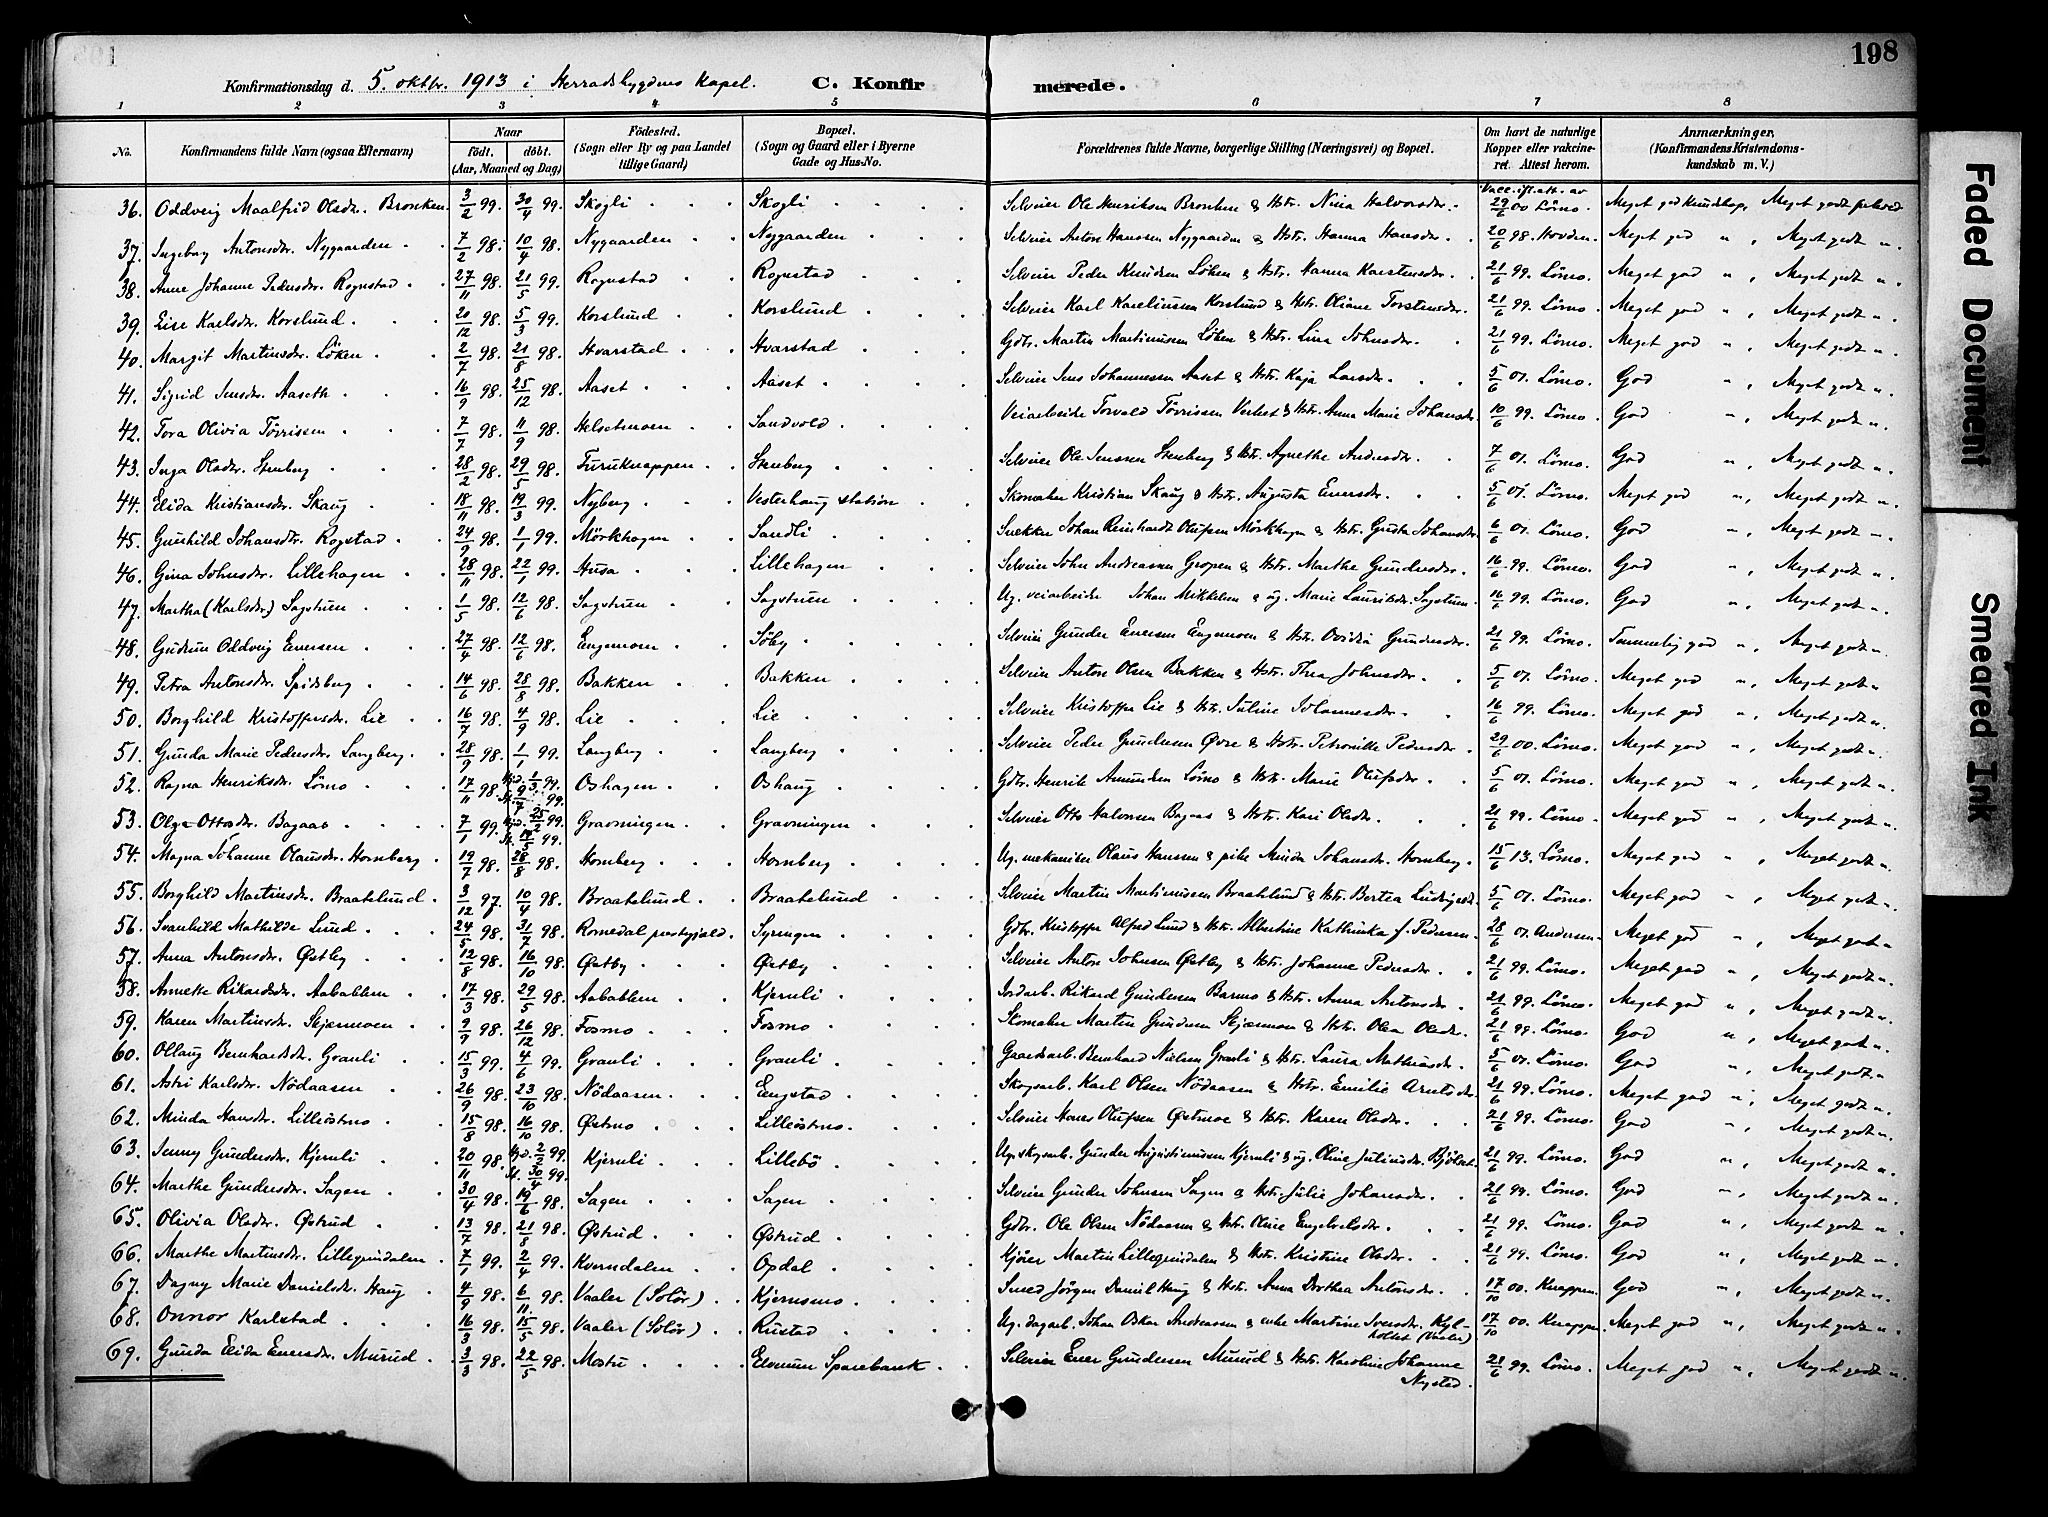 198
Konfirmationsdag d. 5. oktbr. 1913 i Herradsbygdens Kapel. C. Konfirmerede.
1 2 3 4 5 6 7 8
No. Konfirmandens fulde Navn (ogsaa Efternavn) Naar født. døbt. (Aar, Maaned og Dag) Fødested. (Sogn eller By og paa Landet tillige Gaard) Bopæl. (Sogn og Gaard eller i Byerne Gade og Hus-No. Forældrenes fulde Navne, borgerlige Stilling (Næringsvei) og Bopæl. Om havt de naturlige Kopper eller vakcineret. Attest herom. Anmærkninger, (Konfirmandens Kristendomskundskab m. V.)
36. Oddveig Maalfrid Olsdr. Bronken 3/2 99. 30/4 99. Skogli Skogli Selveier Ole Henriksen Bronken & Hstr. Nina Halvorsdr. Vacc. ifl. att. av 29/6 00 Lömo. Meget god Kundskap, Meget godt forhold
37. Ingeborg Antonsdr. Nygaarden 7/2 98. 10/4 98. Nygaarden Nygaarden Selveier Anton Hanssen Nygaarden & Hstr. Hanna Hansdr. 20/6 98. Hovden. Meget god ", Meget godt "
38. Anne Johanne Pedersdr. Rognstad 27/11 98. 21/5 99. Rognstad Rognstad Selveier Peder Knudsen Løken & Hstr. Hanna Karstensdr. 21/6 99. Lömo. Meget god ", Meget godt "
39. Elise Karlsdr. Korslund 20/12 98. 5/3 99. Korslund Korslund Selveier Karl Karelinssen Korslund & Hstr. Oliane Torstensdr. 21/6 99. Lömo. Meget god ", Meget godt "
40. Margit Martinsdr. Løken 2/7 98. 21/8 98. Hvarstad Hvarstad Gdbr. Martin Martinussen Løken & Hstr. Lina Johnsdr. 21/6 99. Lömo. Meget god ", Meget godt "
41. Sigrid Jensdr. Aaseth 16/9 98. 25/12 98. Aaset Aaset Selveier Jens Johannessen Aaset & Hstr. Kaja Larsdr. 5/6 01. Lömo. God ", Meget godt "
42. Tora Olivia Törrissen 7/7 98. 11/9 98. Helsetmoen Sandvold Veiarbeider Torvald Törrissen & Hstr. Anna Marie Johansdr. 10/6 99. Lömo. God ", Meget godt "
43. Inga Olsdr. Stenberg 28/2 98. 29/5 98. Furuknappen Stenberg Selveier Ole Jenssen Stenberg & Hstr. Agnethe Andersdr. 7/6 01. Lömo. God ", Meget godt "
44. Elida Kristiansdr. Skaug 18/11 98. 19/3 99. Nyberg Vesterhaug station Skomaker Kristian Skaug & Hstr. Augusta Eversdr. 5/6 01. Lömo. Meget god ", Meget godt "
45. Gunhild Johansdr. Rogstad 24/9 98. 1/1 99. Mörkhagen Sandli Snekker Johan Reinhardt Olufsen Mörkhagen & Hstr. Gusta Johansdr. 6/6 01. Lömo. God ", Meget godt "
46. Gina Johnsdr. Lillehagen 28/11 98. 22/1 99. Husa Lillehagen Selveier John Andreassen Gropen & Hstr. Marthe Gundersdr. 16/6 99. Lömo. God ", Meget godt "
47. Martha (Karlsdr.) Sagstuen 1/5 98. 12/6 98. Sagstuen Sagstuen Ug. veiarbeider Johan Mikkelsen & ug. Marie Lauritsdr. Sagstuen 16/6 99. Lömo. God ", Meget godt "
48. Gudrun Oddveig Eversen 27/4 98. 12/6 98. Engemoen Söby Selveier Gunder Eversen Engemoen & Hstr. Ovidia Gundersdr. 21/6 99. Lömo. Temmelig god ", Meget godt "
49. Petra Antonsdr. Spidsberg 14/6 98. 28/8 98. Bakken Bakken Selveier Anton Olsen Bakken & Hstr. Thea Johnsdr. 5/6 01. Lömo. Meget god ", Meget godt "
50. Borghild Kristoffersdr. Lie 16/7 98. 4/9 98. Lie Lie Selveier Kristoffer Lie & Hstr. Juline Johannesdr. 16/6 99. Lömo. Meget god ", Meget godt "
51. Gunda Marie Pedersdr. Langberg 28/9 98. 1/1 99. Langberg Langberg Selveier Peder Gundersen Øvre & Hstr. Petronille Pedersdr. 29/6 00. Lömo. Meget god ", Meget godt "
52. Ragna Henriksdr. Lömo 17/11 98. Hjd. 1/3 99. St. 9/7 99. Oshagen Oshaug Gdbr. Henrik Amundsen Lömo & Hstr. Marie Olufsdr. 5/6 01. Lömo. Meget god ", Meget godt "
53. Olga Ottosdr. Bagaas 7/1 99. Hjd. 25/2 99. St. 14/5 99. Gravningen Gravningen Selveier Otto Halvorsen Bagaas & Hstr. Kari Olsdr. 21/6 99. Lömo. Meget god ", Meget godt "
54. Magna Johanne Olausdr. Hornberg 19/7 98. 28/8 98. Hornberg Hornberg Ug. mekaniker Olaus Hanssen & pike Minda Johansdr. Hornberg. 15/6 13. Lömo. Meget god ", Meget godt "
55. Borghild Martinsdr. Braatelund 3/12 97. 10/4 98. Braatelund Braatelund Selveier Martin Martinussen Braatelund & Hstr. Bertea Ludvigsdr. 5/6 01. Lömo. Meget god ", Meget godt "
56. Svanhild Mathilde Lund 24/5 98. 31/7 98. Romedal prestegjæld. Syringen Gdbr. Kristoffer Alfred Lund & Hstr. Albertine Kathinka f. Pedersen 28/6 01. Andersen. Meget god ", Meget godt "
57. Anna Antonsdr. Østby 12/8 98. 16/10 98. Østby Østby Selveier Anton Johnsen Østby & Hstr. Johanne Pedersdr. 21/6 99. Lömo. Meget god ", Meget godt "
58. Annette Rikardsdr. Aabakken 17/3 98. 29/5 98. Aabakken Kjernli Jordarb. Rikard Gundersen Barmo & Hstr. Anna Antonsdr. 21/6 99. Lömo. Meget god ", Meget godt "
59. Karen Martinsdr. Skjærmoen 9/9 98. 26/12 98. Fosmo Fosmo Skomaker Martin Gundersen Skjærmoen & Hstr. Olea Olsdr. 21/6 99. Lömo. God ", Meget godt "
60. Ollaug Bernhardsdr. Granli 15/3 99. 4/6 99. Granli Granli Gaardsarb. Bernhard Nielsen Granli & Hstr. Laura Mathiasdr. 5/6 01. Lömo. God ", Meget godt "
61. Astri Karlsdr. Nödaasen 26/9 98. 23/10 98. Nödaasen Engstad Skogsarb. Karl Olsen Nödaasen & Hstr. Emilie Arntsdr. 21/6 99. Lömo. Meget god ", Meget godt "
62. Minda Hansdr. Lilleöstmo 15/8 98. 16/10 98. Østmo Lilleöstmo. Selveier Hans Olufsen Østmoe & Hstr. Karen Olsdr. 21/6 99. Lömo. God ", Meget godt "
63. Jenny Gundersdr. Kjernli 20/11 98. Hjd. 2/2 99. St. 30/4 99. Kjernli Lillebö Ug. skogsarb. Gunder Augustinussen Kjernli & ug. Oline Juliusdr. Bjölset 21/6 99. Lömo. God ", Meget godt "
64. Marthe Gundersdr. Sagen 30/4 98. 19/6 98. Sagen Sagen Selveier Gunder Johnsen Sagen & Hstr. Julie Johansdr. 21/6 99. Lömo. God ", Meget godt "
65. Olivia Olsdr. Østrud 13/7 98. 21/8 98. Østrud Østrud Gdbr. Ole Olsen Nödaasen & Hstr. Oline Engebretsdr. 21/6 99. Lömo. God ", Meget godt "
66. Marthe Martinsdr. Lillegrindalen 7/1 99. 2/4 99. Kverndalen Opdal Kjører Martin Lillegrindalen & Hstr. Kristine Olsdr. 21/6 99. Lömo. God ", Meget godt "
67. Dagny Marie Danielsdr. Haug 4/9 98. 6/11 98. Vaaler (Solör) Kjernsmo Smed Jörgen Daniel Haug & Hstr. Anna Dorthea Antonsdr. 17/10 00. Knappen. God ", Meget godt "
68. Onnor Karlstad 16/3 98. 15/5 98. Vaaler (Solör) Rustad Ug. dagarb. Johan Oskar Andreassen & enke Martine Iversdr. (Vaaler) 17/10 00. Knappen. Meget god ", Meget godt "
69. Gunda Elida Eversdr. Murud 3/3 98. 22/5 98. Mostu Elverum Sparebank Selveier Ever Gundersen Murud & Hstr. Karoline Johanne Nysted. 21/6 99. Lömo. Meget god ", Meget godt "
Faded Document
Smeared Ink